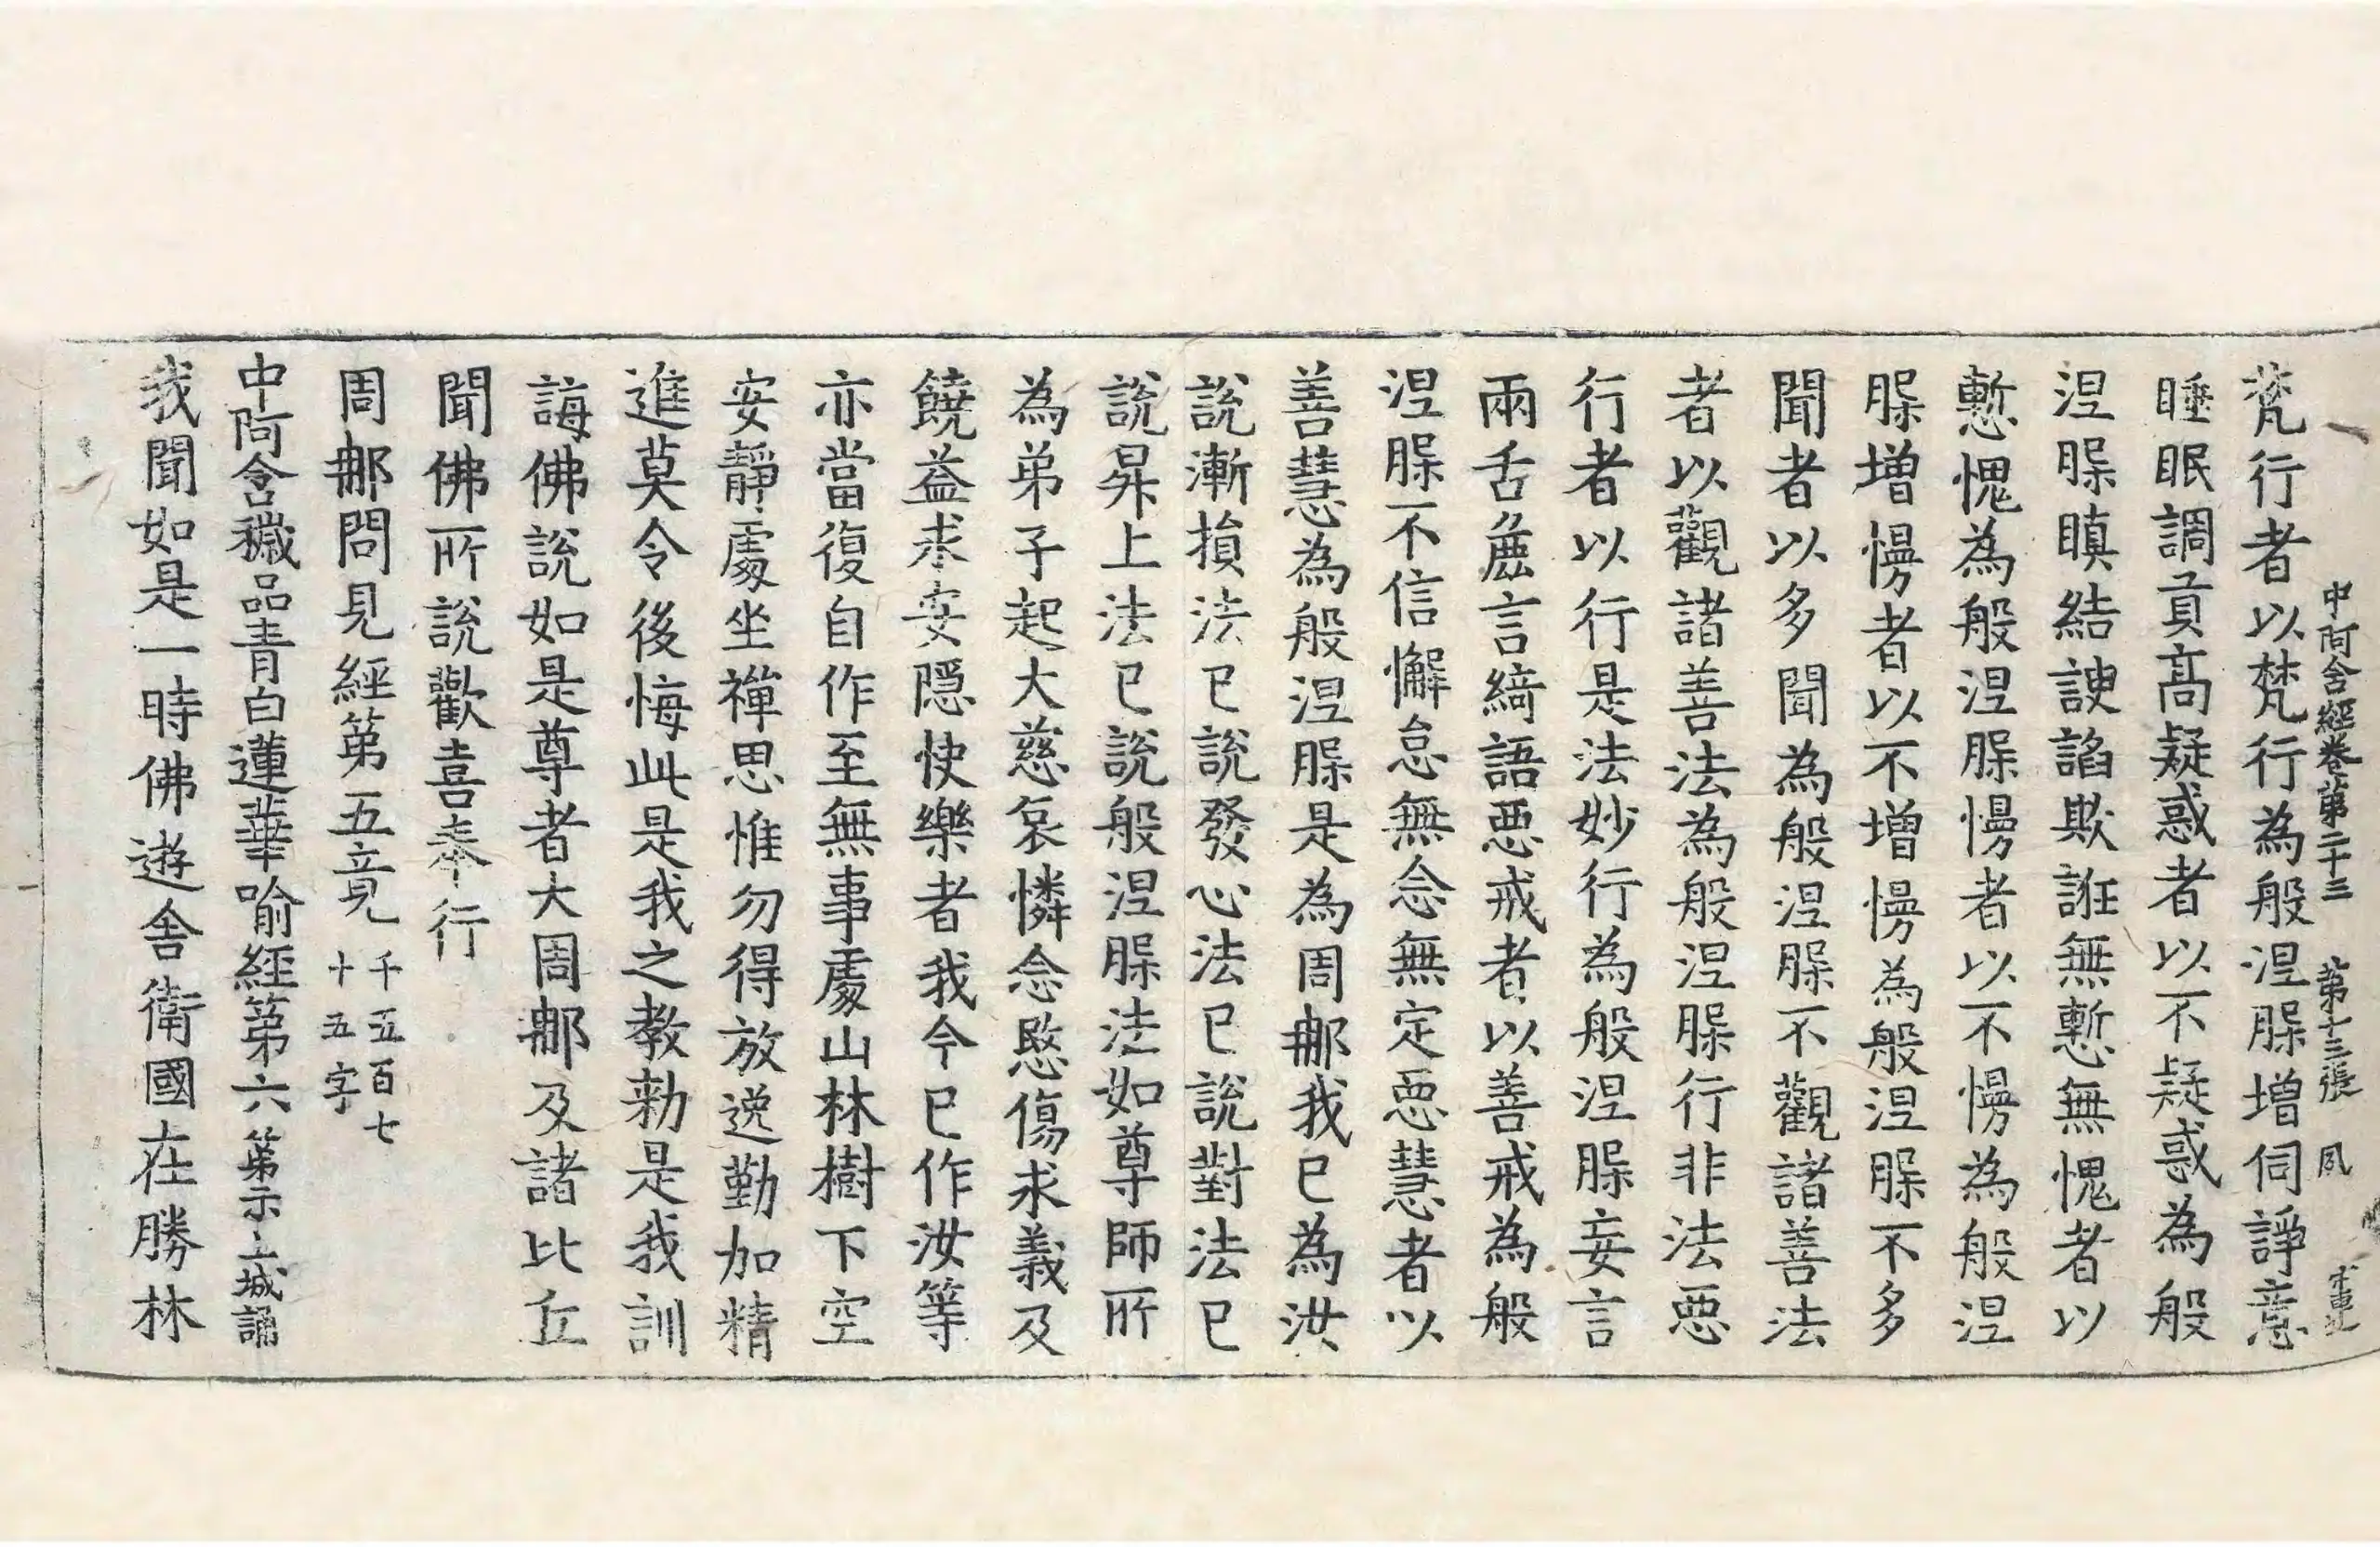 中阿含經卷第二十三　第十三張　夙
梵行者以梵行為般涅槃增伺諍意
睡眠調貢高疑惑者以不疑惑為般
涅槃瞋結諛諂欺誑無慙無愧者以
慙愧為般涅槃慢者以不慢為般涅
槃增慢者以不增慢為般涅槃不多
聞者以多聞為般涅槃不觀諸善法
者以觀諸善法為般涅槃行非法惡
行者以行是法妙行為般涅槃妄言
兩舌麁言綺語惡戒者以善戒為般
涅槃不信懈怠無念無定惡慧者以
善慧為般涅槃是為周那我已為汝
說漸損法已說發心法已說對法已
說昇上法已說般涅槃法如尊師所
為弟子起大慈哀憐念愍傷求義及
饒益求安隱快樂者我今已作汝等
亦當復自作至無事處山林樹下空
安靜處坐禪思惟勿得放逸勤加精
進莫令後悔此是我之教勅是我訓
誨佛說如是尊者大周那及諸比丘
聞佛所說歡喜奉行
周那問見經第五竟千五百七十五字
中阿含穢品青白蓮華喻經第六第二小土城誦
我聞如是一時佛遊舍衛國在勝林